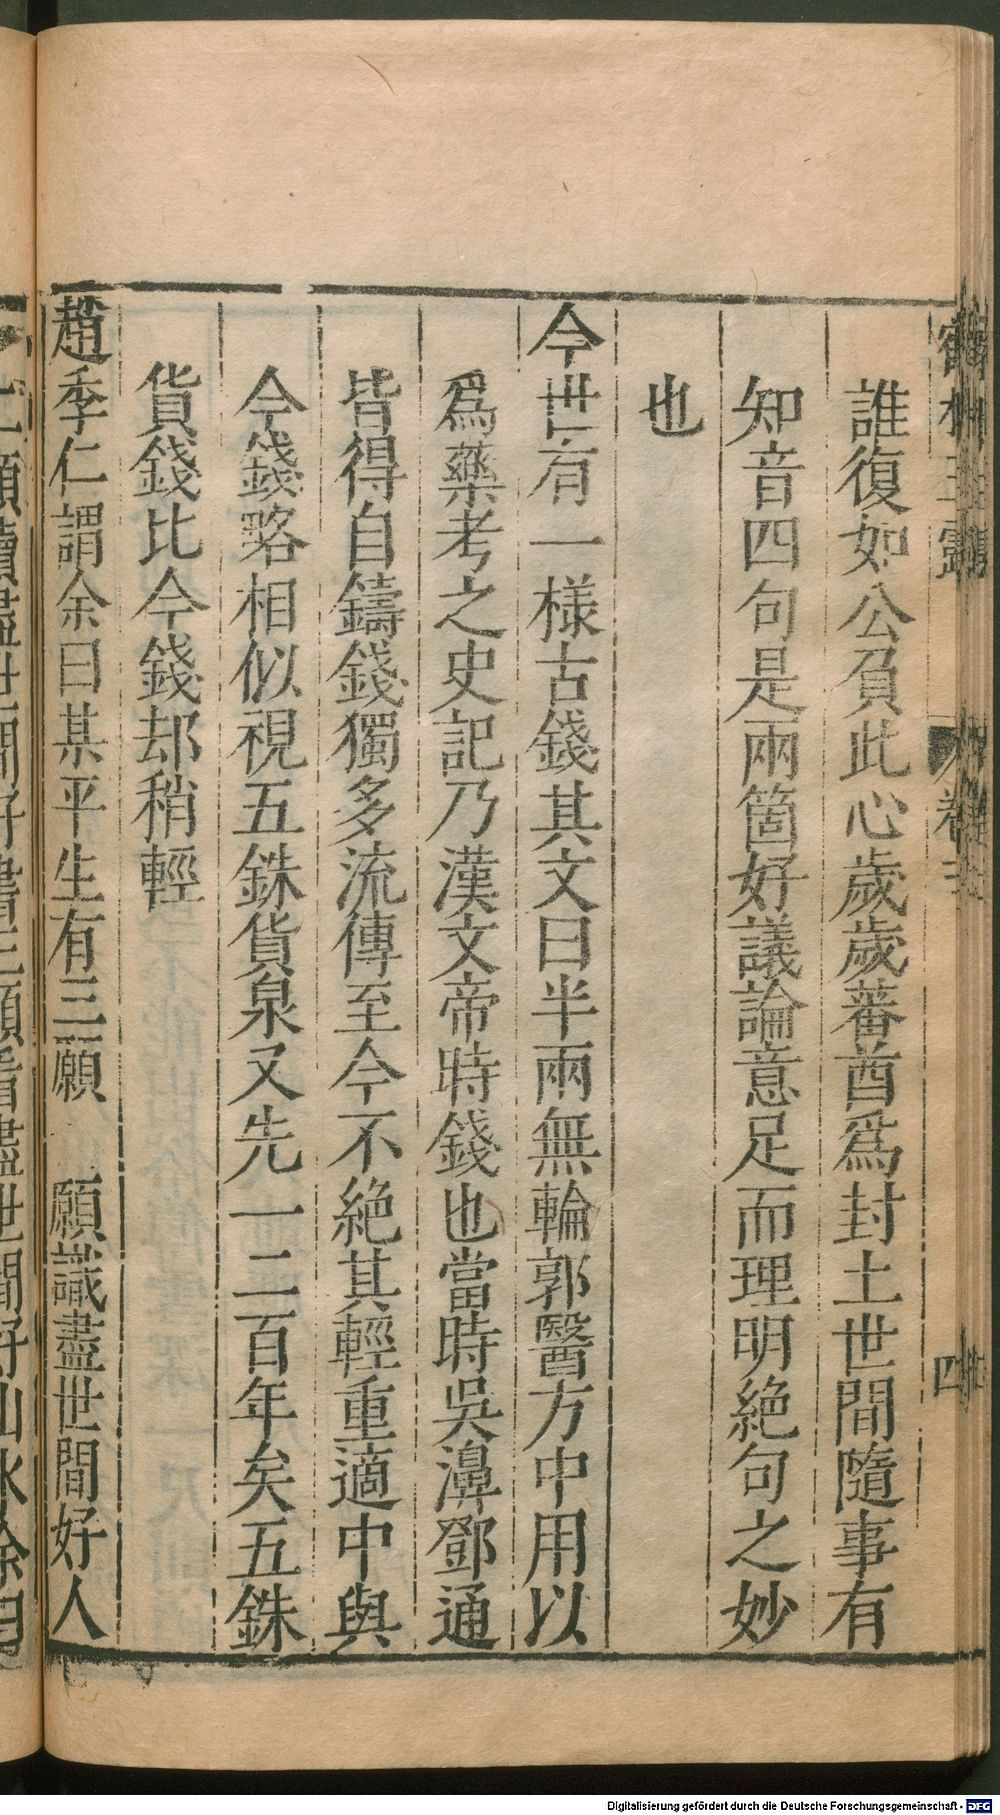 誰復如公負此心歲歲蕃酋爲封土世間隨事有
知音四句是兩箇好議論意足而理明絶句之妙
也
今世有一樣古錢其文曰半兩無輪郭醫方中用以
爲藥考之史記乃漢文帝時錢也當時吳濞鄧通
皆得自鑄錢獨多流傳至今不絶其輕重適中與
今錢略相似視五銖貨泉又先一二百年矣五銖
貨錢比今錢却稍輕
趙季仁謂余曰某平生有三願 願識盡世間好人
願讀盡世間好書三願看盡世間好山水余曰
Digitalisierung gefördert durch die Deutsche Forschungsgemeinschaft - DFG